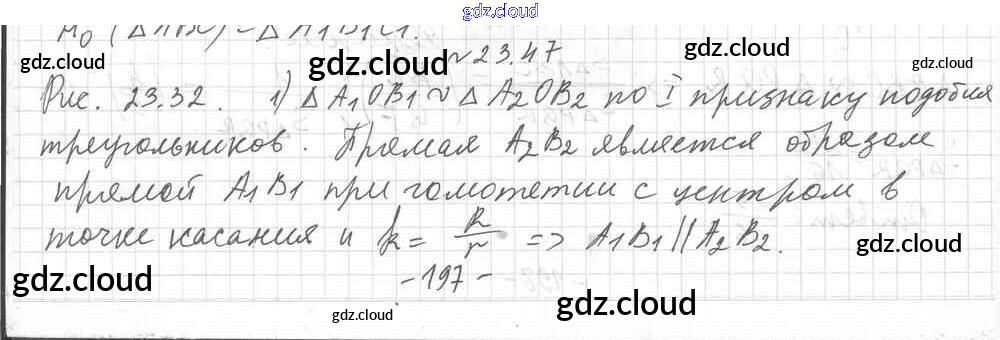 gdz.cloud
H₀ (Δ ABC) = Δ A1B1C1.
gdz.cloud
gdz.cloud
№ 23.47
gdz.cloud
Рис. 23.32. 1) Δ A₁OB₁ ~ Δ A₂OB₂ по I признаку подобия
треугольников. Прямая A₂B₂ является образом
прямой A₁B₁ при гомотетии с центром в
точке касания и k = R/r => A₁B₁ || A₂B₂.
- 197 -
gdz.cloud
gdz.cloud
gdz.cloud
gdz.cloud
gdz.cloud